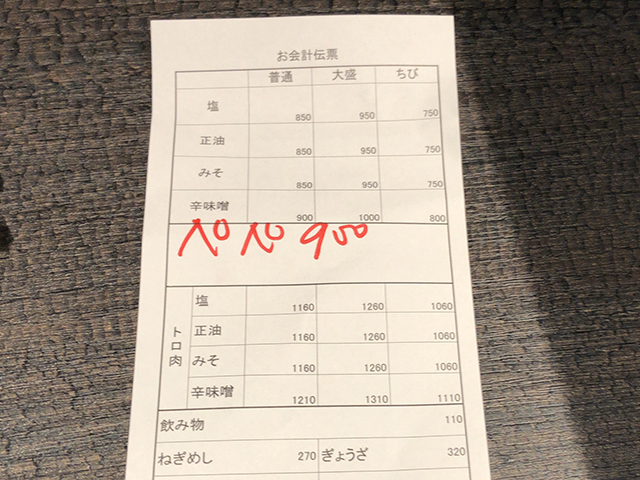 お会計伝票
普通 大盛 ちび
塩 850 950 750
正油 850 950 750
みそ 850 950 750
辛味噌 900 1000 800
ペペ 900
トロ肉
塩 1160 1260 1060
正油 1160 1260 1060
みそ 1160 1260 1060
辛味噌 1210 1310 1110
飲み物 110
ねぎめし 270 ぎょうざ 320